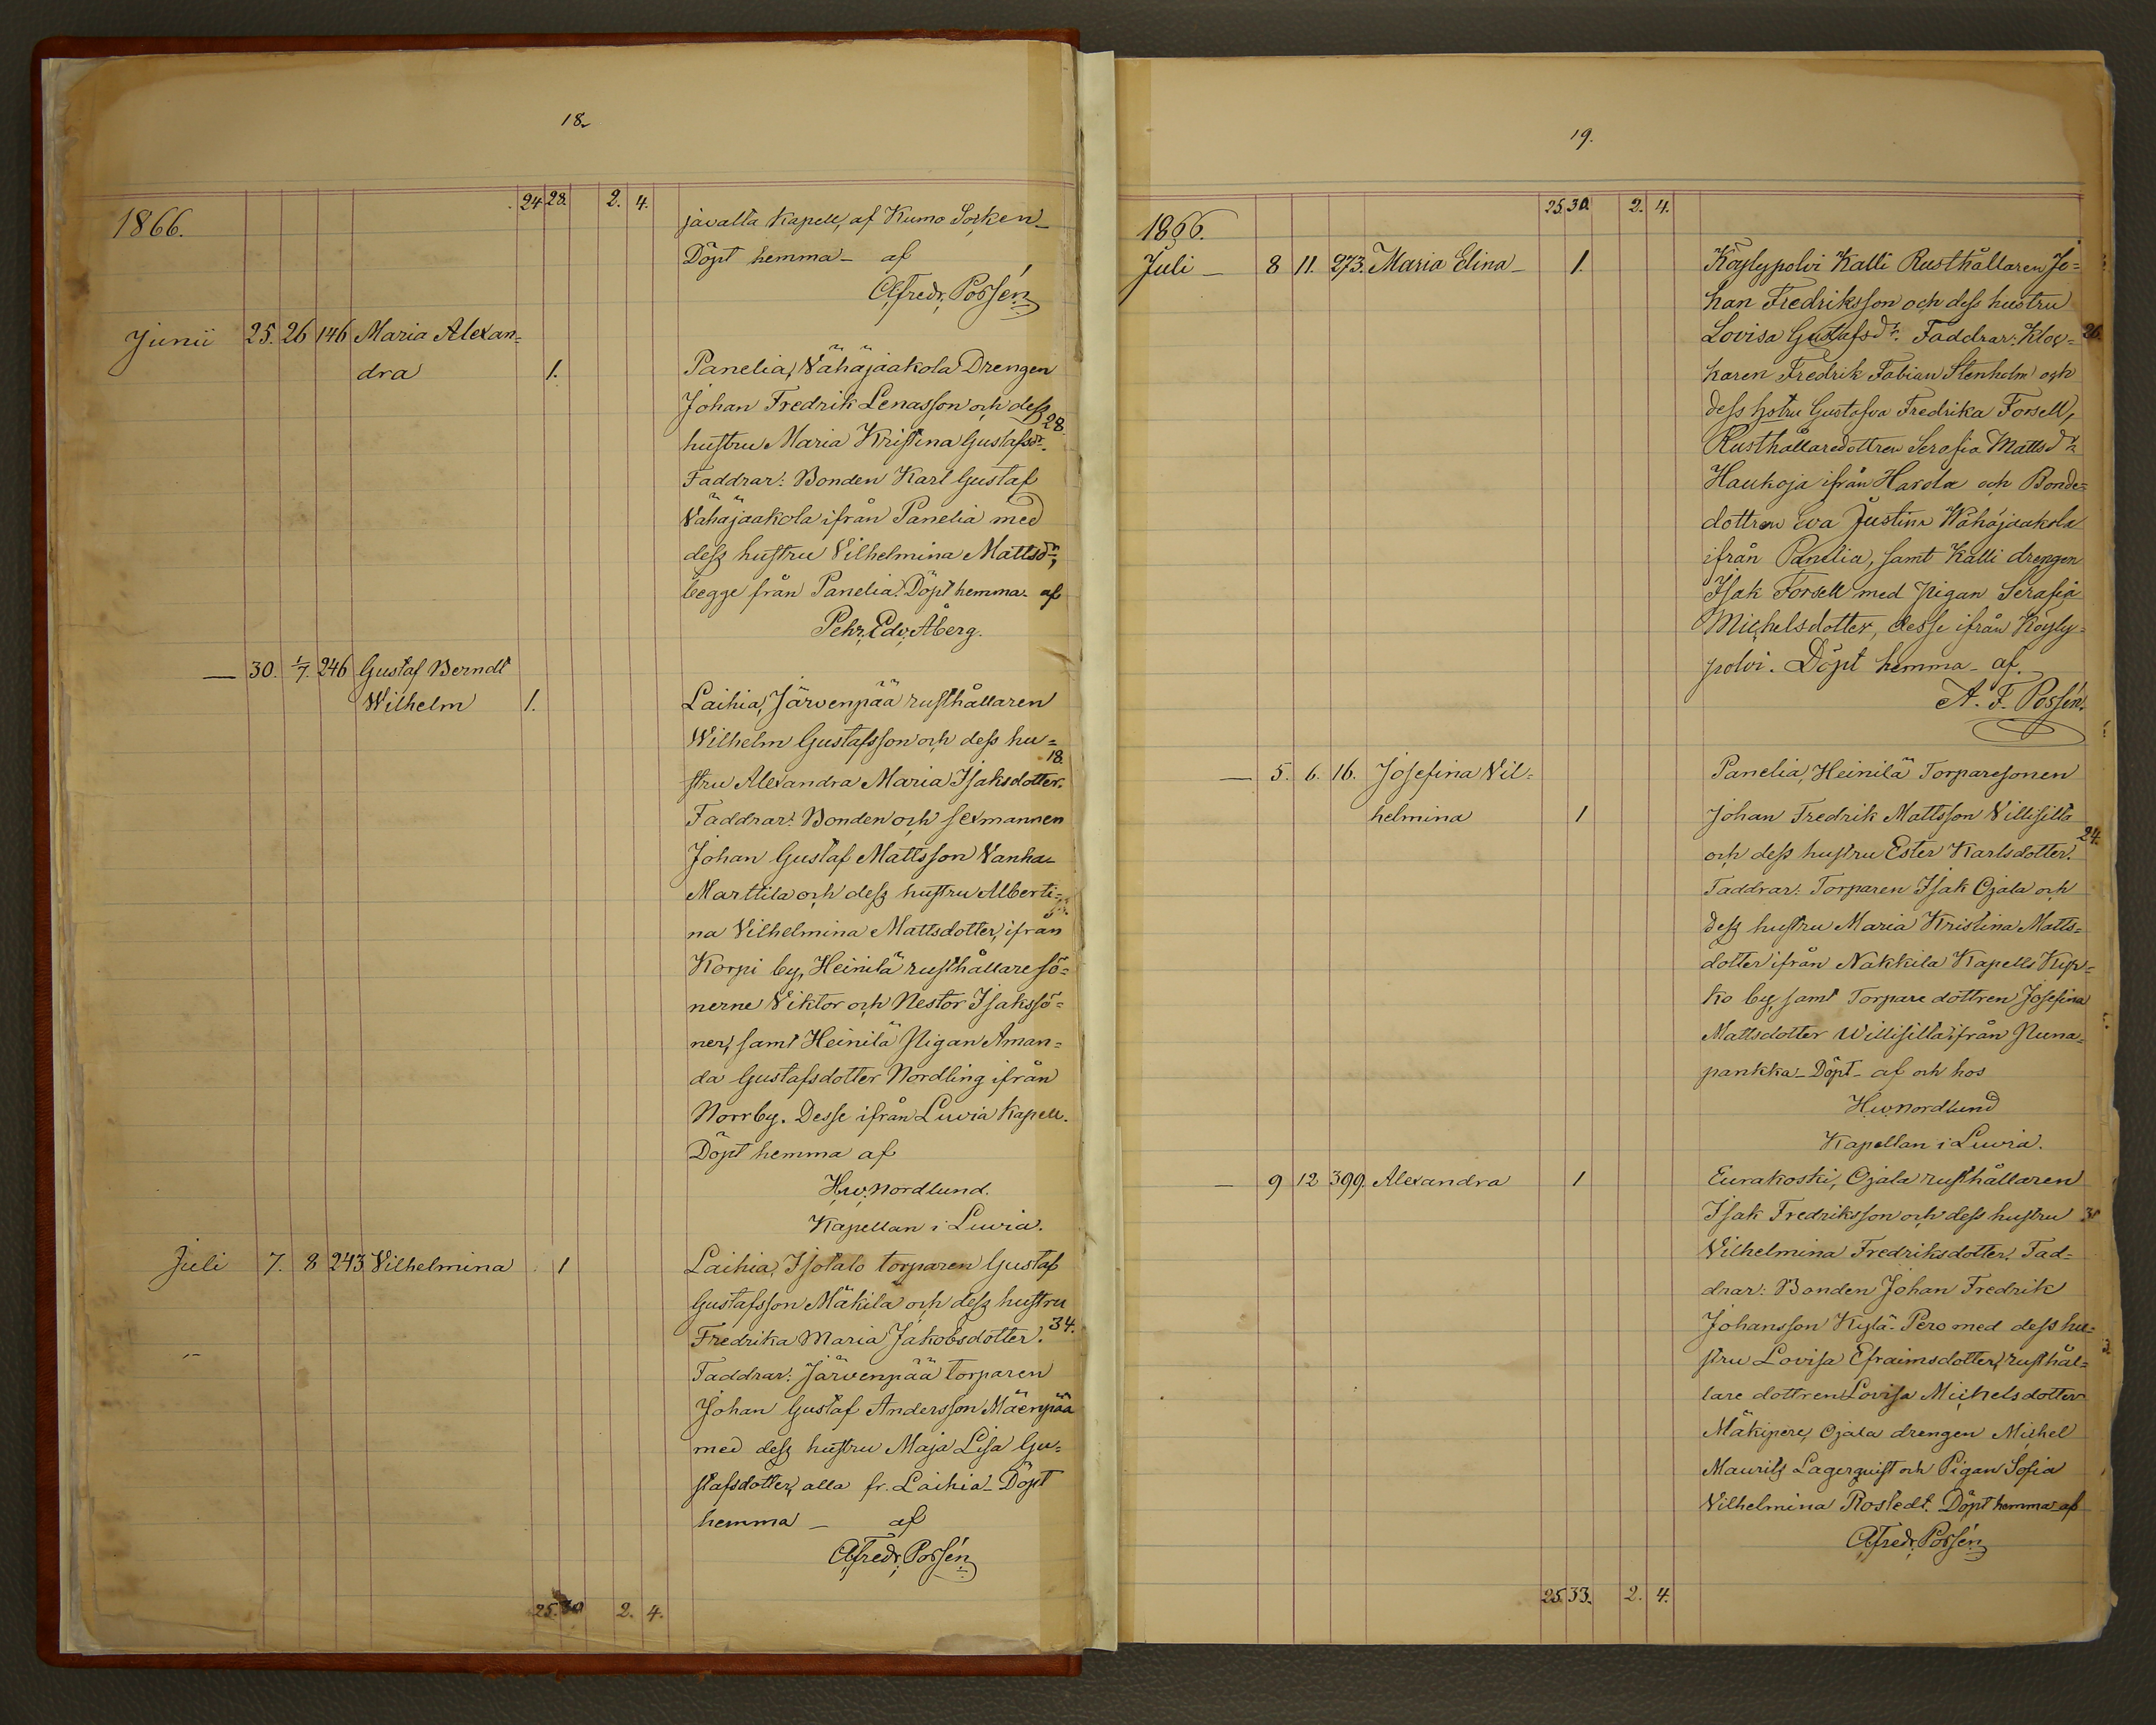 18.
24 28. 2. 4.
1866. javalta Kapell, af Kumo Socken_
Döpt hemma _ af
Afredr. Possén
Junii 25. 26 146 Maria Alexan=
dra 1. Panelia, Vähäjaakola Drengen
Johan Fredrik Lenasson och dess
28.
hustru Maria Kristina Gustafsdr.
Faddrar: Bonden Karl Gustaf
Vähäjaakola ifrån Panelia med
dess hustru Vilhelmina Mattsdr,
begge från Panelia. Döpt hemma af
Pehr. Edv. Åberg.
— 30. 1/7. 246 Gustaf Berndt
Wilhelm 1. Laihia, Järvenpää rusthållaren
Wilhelm Gustafsson och dess hu=
18.
stru Alexandra Maria Isaksdotter.
Faddrar: Bonden och sexmannen
Johan Gustaf Mattsson Vanha-
Marttila och dess hustru Alberti=
na Vilhelmina Mattsdotter, ifran
Korpi by, Heinilä rusthållare sö=
nerne Viktor och Nestor Isakssö=
ner, samt Heinilä Pigan Aman=
da Gustafsdotter Nordling ifrån
Norrby. Desse ifrån Luvia Kapell.
Döpt hemma af
H.W. Nordlund.
Kapellan i Luvia.
Juli 7. 8 243 Vilhelmina 1 Laihia, Isotalo torparen Gustaf
Gustafsson Mäkila och dess hustru
Fredrika Maria Jakobsdotter. 34.
Faddrar: Järvenpää torparen
Johan Gustaf Andersson Mäenpää
med dess hustru Maja Lisa Gu=
stafsdotter, alla fr. Laihia_ Döpt
hemma _ af
Afredr. Possén
25. 30 2. 4.
19.
25. 30. 2. 4.
1866.
Juli _ 8 11. 273. Maria Elina _ 1. Köylypolvi Kalli Rusthållaren Jo=
han Fredriksson och dess hustru
Lovisa Gustafsdr. Faddrar: Kloc= 26.
karen Fredrik Fabian Stenholm och
dess hstru Gustafva Fredrika Forsell,
Rusthållaredottren Serafia Mattsdr
Haukoja ifrån Harola och Bonde=
dottren Eva Justina Wähäjaakola
ifrån Panelia, samt Kalli drengen
Isak Forsell med pigan Serafia
Michelsdotter, desse ifrån Köyly=
polvi. Döpt hemma _ af
A. F. Possén.
— 5. 6. 16. Josefina Vil= Panelia, Heinilä Torparesonen
helmina 1 Johan Fredrik Mattsson Villisilta
24.
och dess hustru Ester Karlsdotter.
Faddrar: Torparen Isak Ojala och
dess hustru Maria Kristina Matts=
dotter ifrån Nakkila Kapells Kyr=
ko by, samt Torpare dottren Josefina
Mattsdotter Willisilta ifrån Puna=
pankka_ Döpt _ af och hos
H.W. Nordlund
Kapellan i Luvia.
— 9 12 399. Alexandra 1 Eurakoski, Ojala rusthållaren
Isak Fredriksson och dess hustru 31
Vilhelmina Fredriksdotter. Fad=
drar: Bonden Johan Fredrik
Johansson Kylä-Pero med dess hu=
stru Lovisa Efraimsdotter, rusthål=
lare dottren Lovisa Michelsdotter
Mäkipere, Ojala drengen Michel
Maurits Lagerquist och Pigan Sofia
Vilhelmina Rostedt. Döpt hemma af
Afredr. Possén
25. 33. 2. 4.